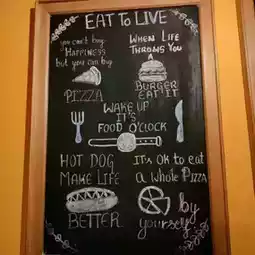 EAT TO LIVE
you can't buy
HAPPINESS
but you can buy
PIZZA
WHEN LIFE
THROWS YOU
A
BURGER
EAT IT
WAKE UP
IT'S
FOOD O'CLOCK
HOT DOG
MAKE LIFE
BETTER
It's OK to eat
a whole PIZZA
by
yourself